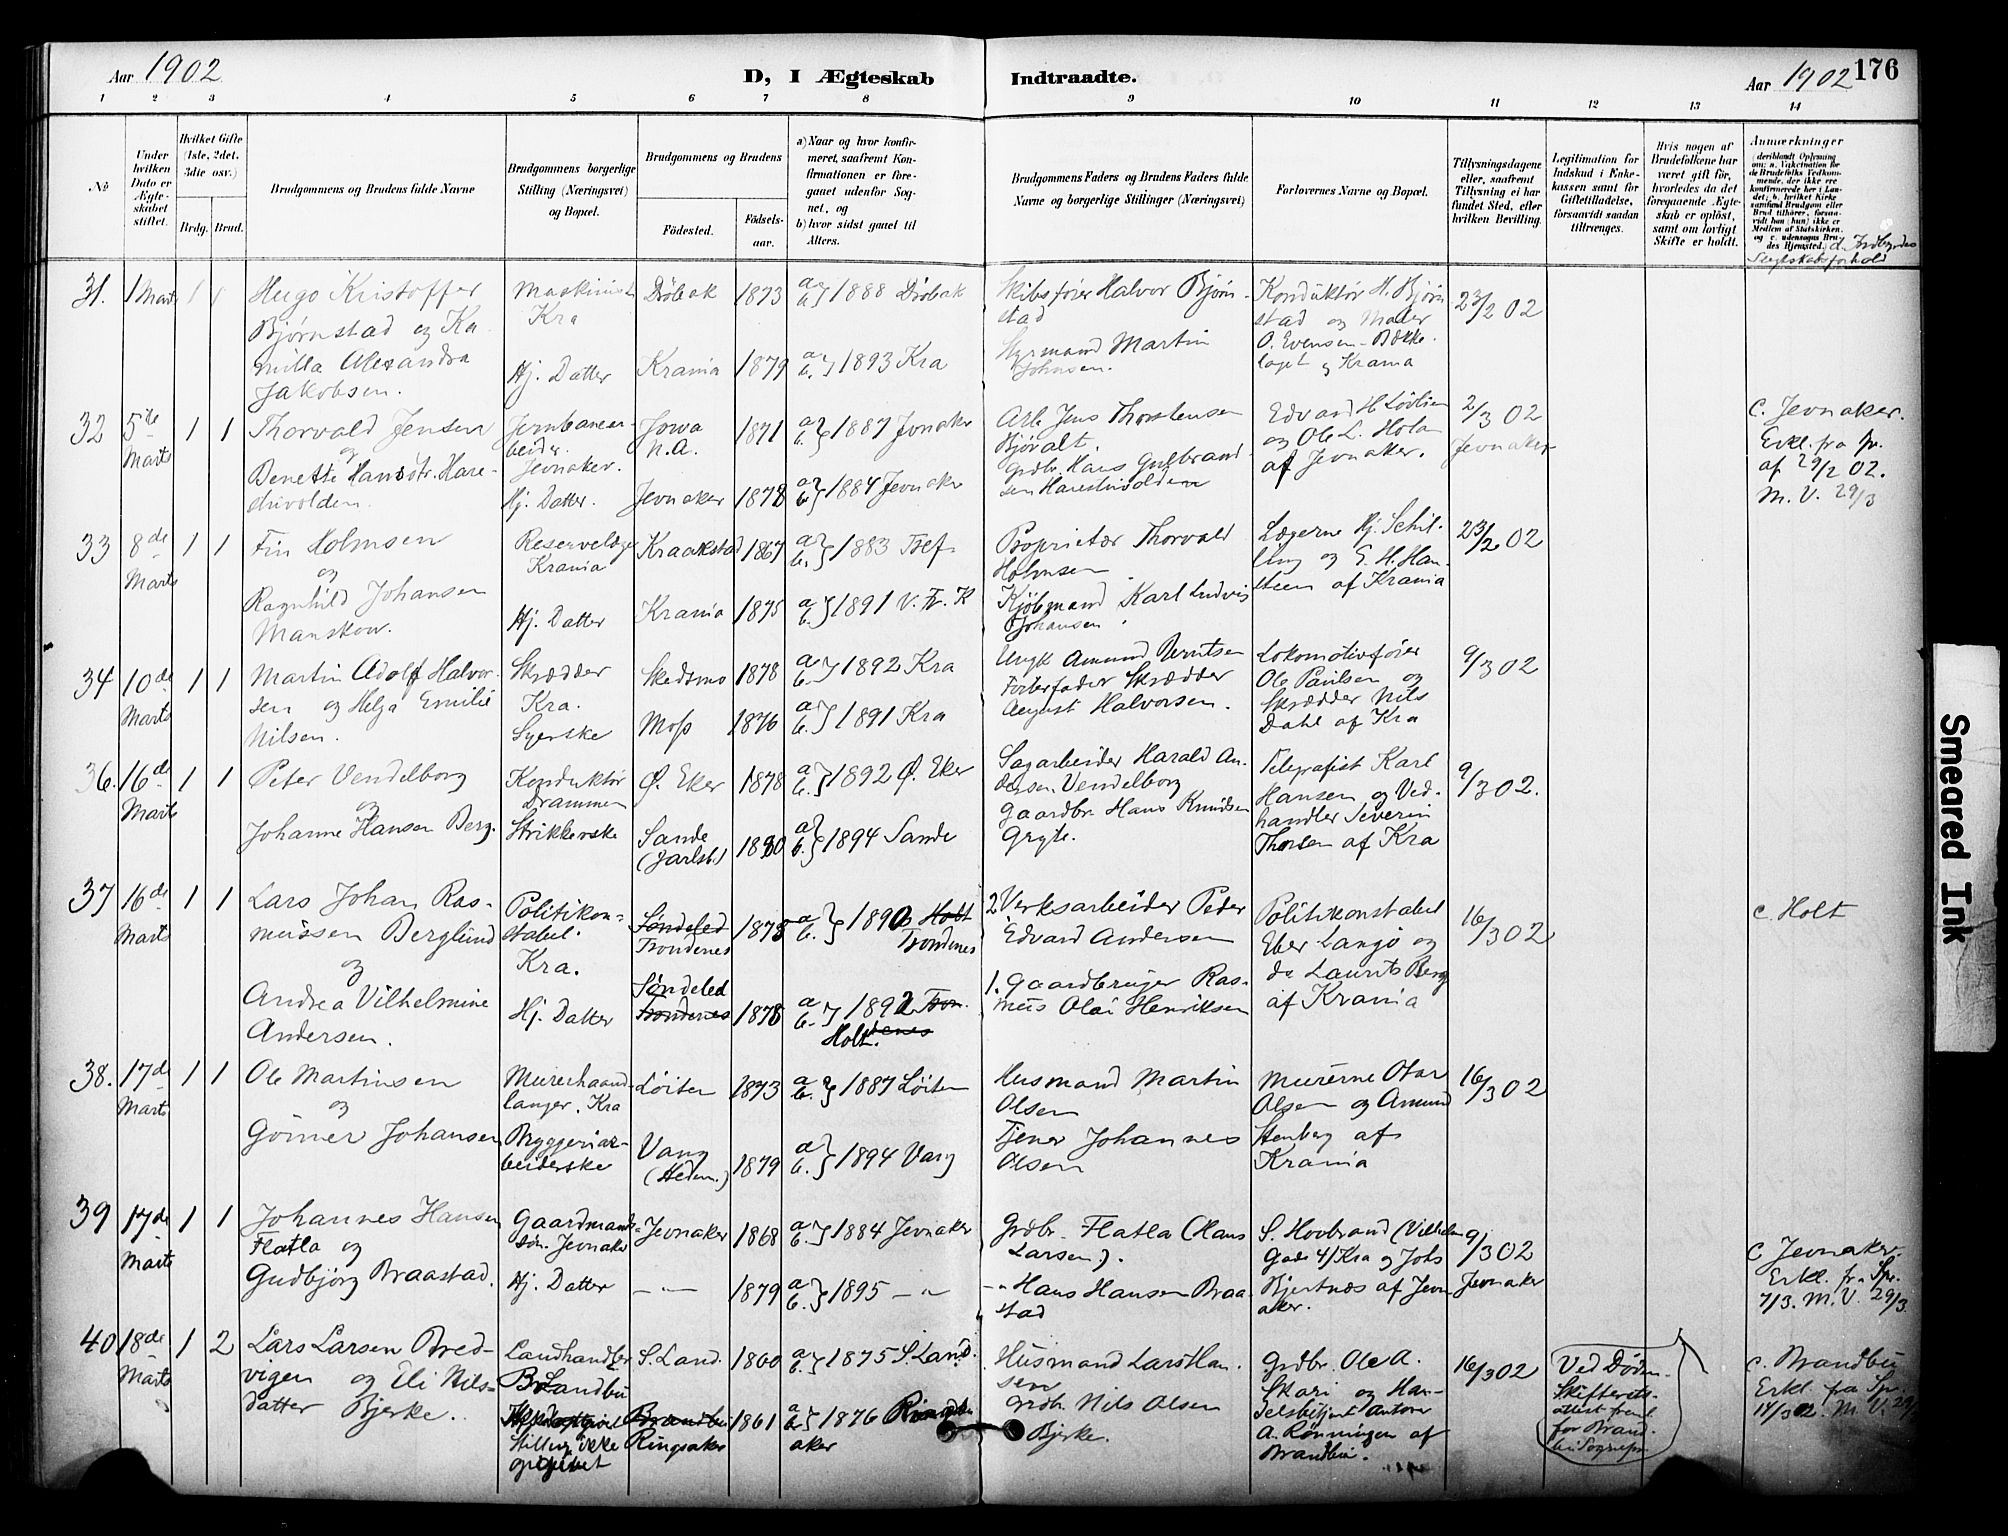 Aar 1902
D, I Ægteskab Indtraadte.
Aar 1902 176
1 2 3 4 5 6 7 8 9 10 11 12 13 14
No
Under hvilken Dato er Ægteskabet stiftet.
Hvilket Gifte (1ste, 2det, 3die osv.)
Brdg. Brud.
Brudgommens og Brudens fulde Navne
Brudgommens borgerlige Stilling (Næringsvei) og Bopæl.
Brudgommens og Brudens
Fødested. Fødselsaar.
a) Naar og hvor konfirmeret, saafremt Konfirmationen er foregaaet udenfor Sognet, og
b) hvor sidst gaaet til Alters.
Brudgommens Faders og Brudens Faders fulde Navne og borgerlige Stillinger (Næringsvei)
Forlovernes Navne og Bopæl.
Tillysningsdagene eller, saafremt Tillysning ei har fundet Sted, efter hvilken Bevilling.
Legitimation for Indskud i Enkekassen samt for Giftetilladelse, forsaavidt saadan tiltrænges.
Hvis nogen af Brudefolkene har været gift før, hvorledes da det foregaaende Ægteskab er opløst, samt om lovligt Skifte er holdt.
Anmærkninger
(deriblandt Oplysning om: a. Vakcination for de Brudefolks Vedkommende, der ikke ere konfirmerede her i Landet; b. hvilket Kirkesamfund Brudgom eller Brud tilhører, forsaavidt han (hun) ikke er Medlem af Statskirken, og c. udensogns Brudes Hjemsted.) d. Indbyrdes
Slegtskabsforhold
31. 1 Marts 1 1
Hugo Kristoffer
Bjørnstad og Ka
milla Alexandra
Jakobsen.
Maskinist
Kra
Hj. Datter
Drøbak 1873 a b} 1888 Drøbak
Krania 1879 a b} 1893 Kra
Skibsfører Halvor Bjørn-
stad
Styrmand Martin
Johnsen.
Konduktør H. Bjørn
stad og Maler
O. Evensen - Bække
laget og Krania
23/2 02
32 5te Marts 1 1
Thorvald Jensen
og
Benette Hansdtr. Hare-
stuvolden
Jernbanear-
beider.
Jevnaker.
Hj. Datter.
Jowa
N.A. 1871 a b} 1887 Jevnaker
Jevnaker 1878 a b} 1884 Jevnaker
Arb. Jens Thorstensen
Bjøralt.
grdbr. Hans Gulbrand-
sen Harestuvolden
Edvard H Løvlien
og Ole L. Hola
af Jevnaker.
2/3 02
Jevnaker
c. Jevnaker.
Erkl. fra Spr.
af 29/2 02.
M.V. 29/3
33 8de Marts 1 1
Fin Holmsen
og
Ragnhild Johansen
Manskow.
Reservelæge
Krania
Hj. Datter
Kraakstad 1867 a b} 1883
Krania 1875 a b} 1891 V. Fr. K
Proprietær Thorvald
Holmsen
Kjøbmand Karl Ludvig
Johansen
Lægerne Hj. Schil-
ling og E. H. Han-
steen af Krania
23/2 02
34 10de Marts 1 1
Martin Adolf Halvor-
sen og Helga Emilie
Nilsen.
Skrædder
Kra.
Syerske
Skedsmo 1878 a b} 1892 Kra
Moss 1876 a b} 1891 Kra
Ungk Amund Berntsen
Forterfader Skrædder
August Halvorsen.
Lokomotivfører
Ole Paulsen og
Skrædder Nils
Dahl af Kra
9/3 02
36. 16de Marts 1 1
Peter Vendelborg
og
Johanne Hansen Berg.
Konduktør
Drammen
Strikkerske
Ø. Eker 1878 a b} 1892 Ø. Eker
Sande
(Jarlsb.) 1880 a b} 1894 Sande
Sagarbeider Harald An
dersen Vendelborg
Gaardbr. Hans Knudsen
Gryte.
Telegrafist Karl
Hansen og Ved-
handler Severin
Thorsen af Kra
9/3 02.
37 16de Marts 1 1
Lars Johan Ras-
mussen Berglund
og
Andrea Vilhelmine
Andersen.
Politikon-
stabel.
Kra.
Hj. Datter
Søndeled
Trondenes 1878 a b} 1890 Holt
Trondenes
Søndeled
Trondenes 1878 a b} 1892 Tron-
denes
Holt.
2 Verksarbeider Peder
Edvard Andersen
1. Gaardbruger Ras-
mus Olai Henriksen
Politikonstabel
Eber Langjo og
do Laurits Berg
af Krania
16/3 02
c. Holt
38. 17de Marts 1 1
Ole Martinsen
og
Gørner Johansen
Murerhaand-
langer. Kra
Bryggeriar-
beiderske
Løiten 1873 a b} 1887 Løiten
Vang
(Hedem.) 1879 a b} 1894 Vang
Husmand Martin
Olsen
Tjener Johannes
Olsen
Murerne Otar
Olsen og Amund
Stenberg af
Krania
16/3 02
39 17de Marts 1 1
Johannes Hansen
Flatla og
Gudbjørg Braastad.
Gaardmands-
søn. Jevnaker
Hj. Datter
Jevnaker 1868 a b} 1884 Jevnaker
— " — 1879 a b} 1895 — "
Grdbr. Flatla (Hans
Larsen).
— " Hans Hansen Braa-
stad
S. Hovbrand (Vilhelms
Gade 4) Kra og Johs
Bjertnæs af Jevn
aker.
9/3 02
Jevnaker
c Jevnaker.
Erkl. fra Spr.
7/3. M.V. 29/3.
40 18de Marts 1 2
Lars Larsen Bred-
vigen og Eli Nils-
datter Bjerke.
Landhandler
Brandbu
Stilling ikke
opgivet
S. Land. 1860 a b} 1875 S. Land.
Brandbu
Ringsaker 1861 a b} 1876 Ringsaker
Husmand Lars Han-
sen
Grdbr. Nils Olsen
Bjerke.
Grdbr. Ole A.
Skari og Han-
delsbetjent Anton
A. Rønningen af
Brandbu.
16/3 02
Ved Død.
Skifterets-
attest freml.
for Brand-
bu Sognepr.
c. Brandbu
Erkl. fra Spr.
14/3 02. M.V. 29/3
Smeared Ink